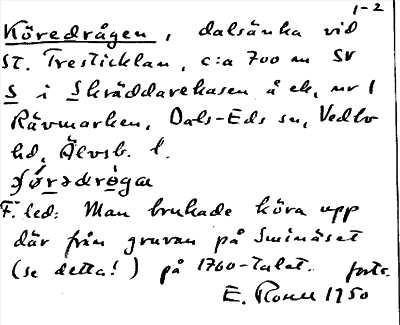 1-2
Köredrågen, dalsänka vid
St. Tresticklan, c:a 700 m SV
S i Skräddarekasen å ek. nr 1
Rävmarken, Dals-Eds sn, Vedbo
hd, Älvsb. l.
F. led: Man brukade köra upp
där från gruvan på Sminäset
(se detta!) på 1760-talet. forts.
E. 1950